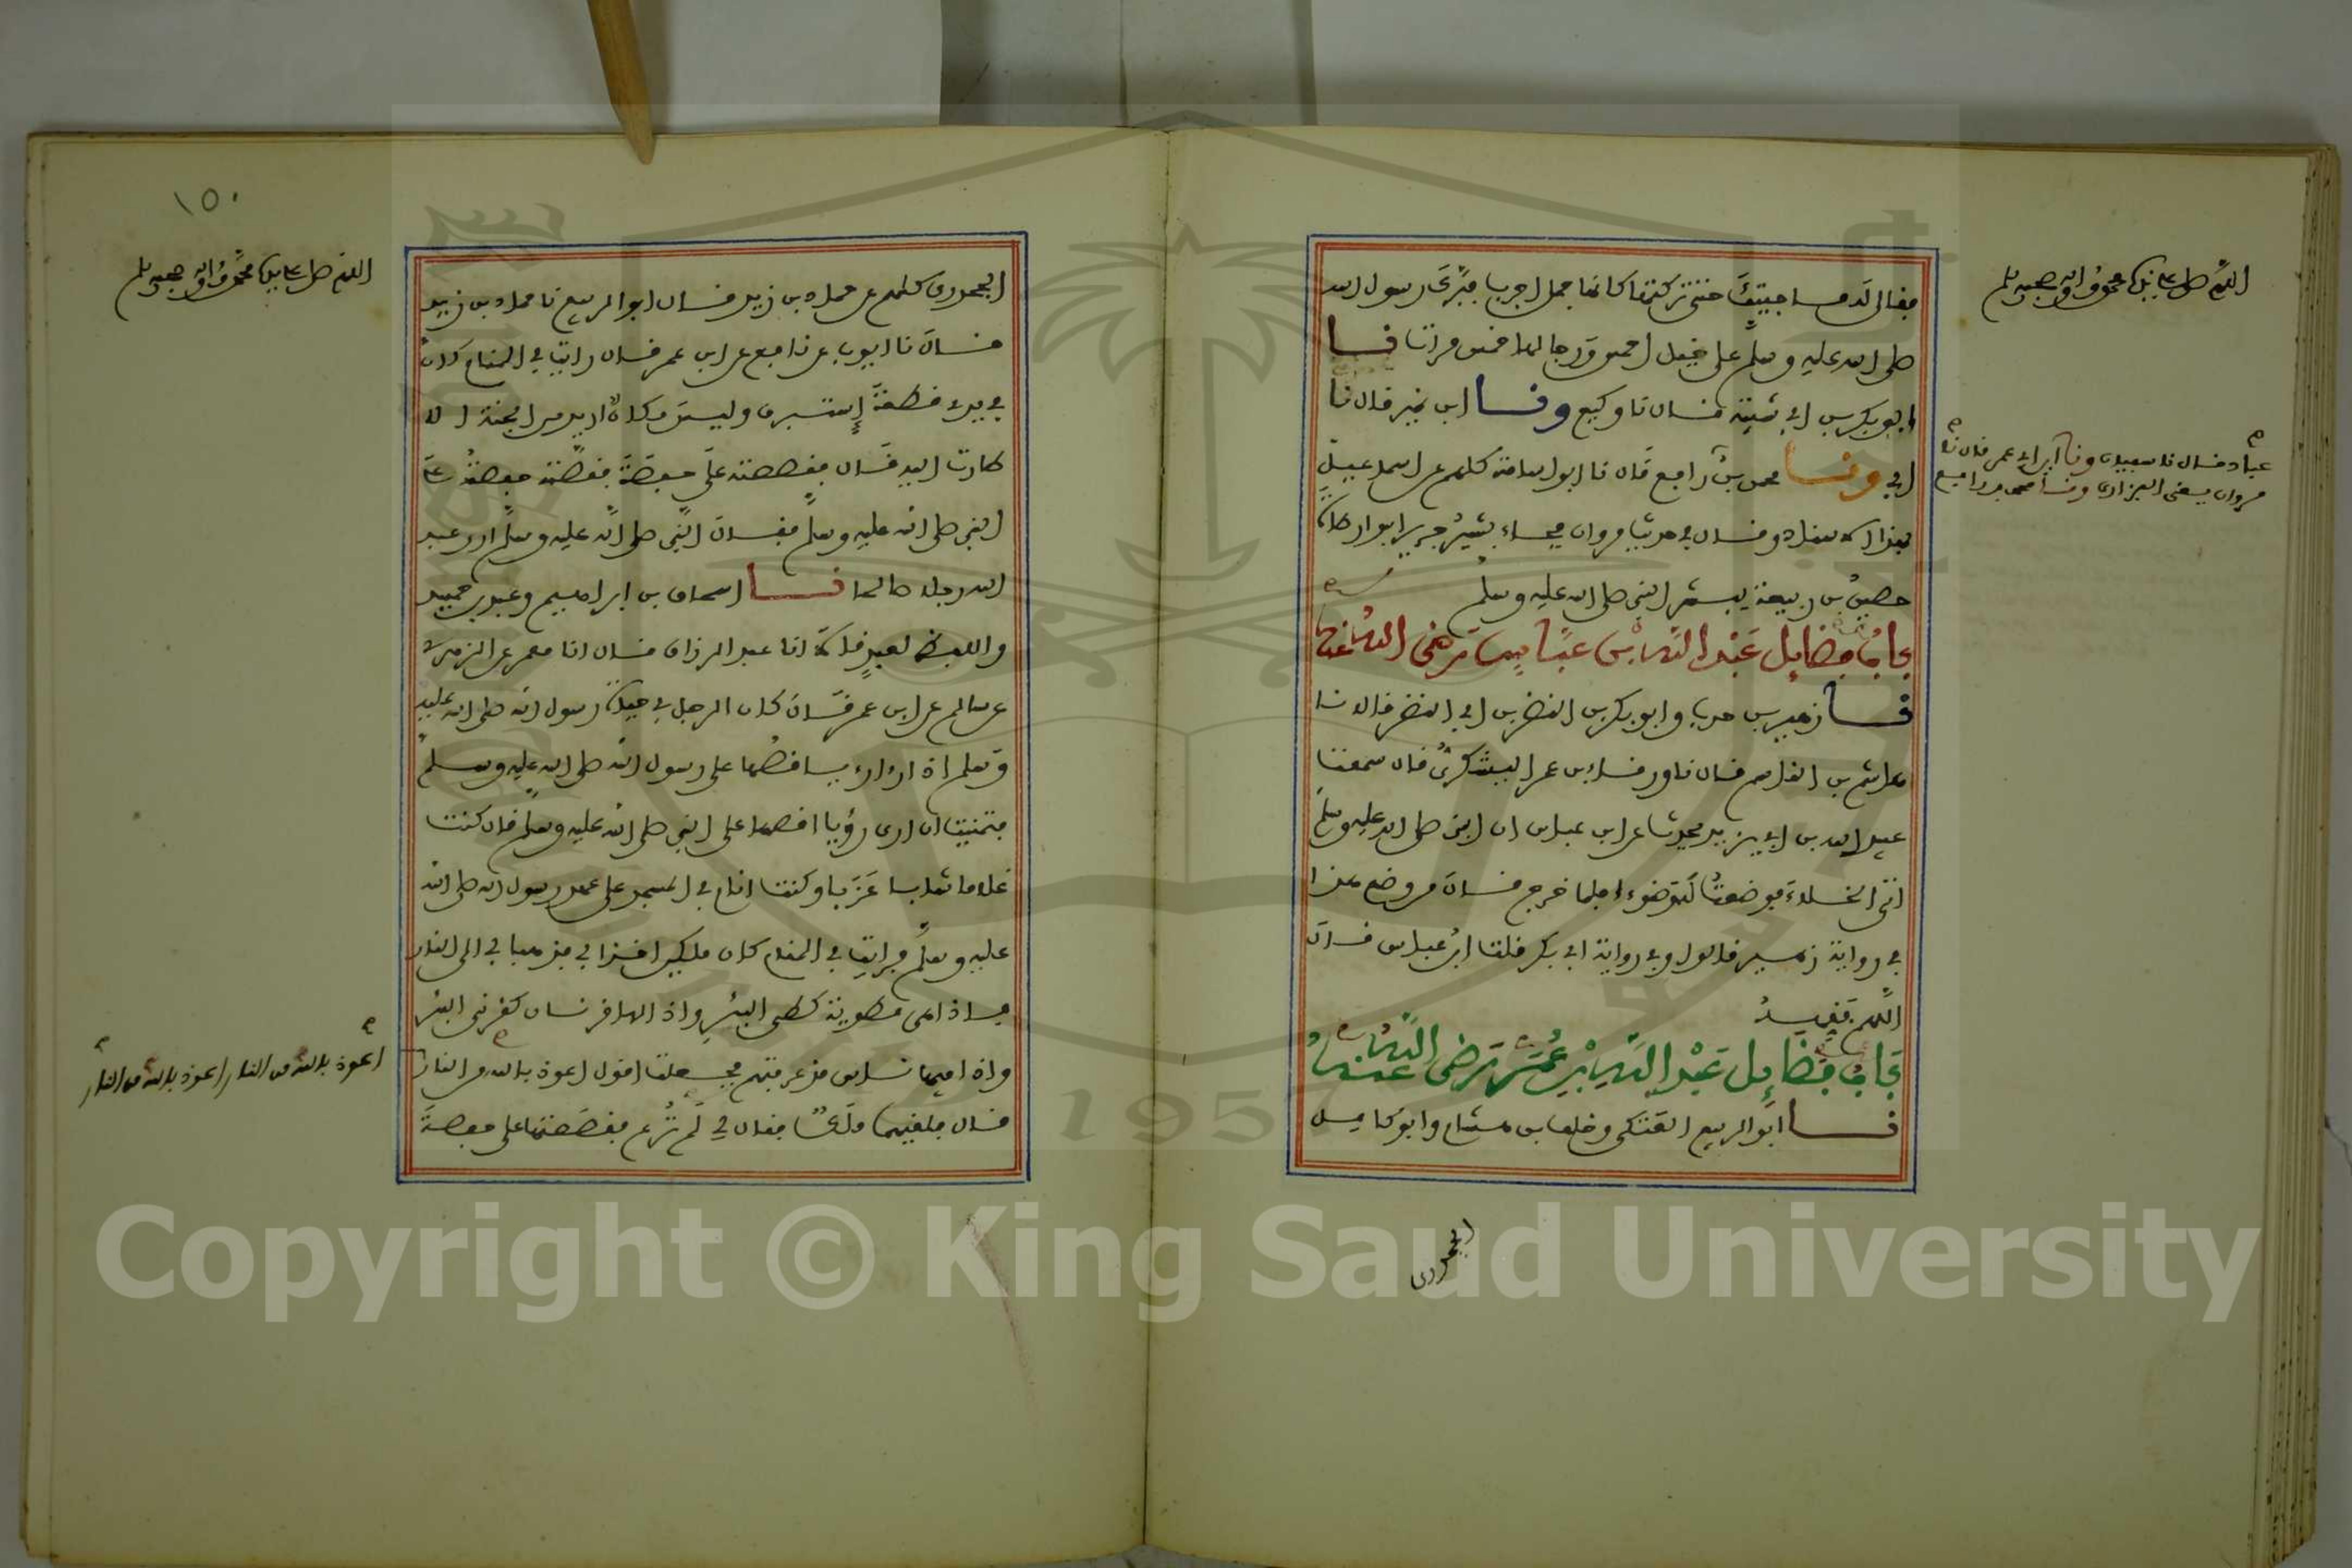 اللهم صل على نبينا محمد وآله وصحبه وسلم
فقال له ما جيتك حتى تركتها كانها جمل اجرب فبرك رسول الله
صلى الله عليه وسلم على خيل احمس ورجالها خمس مرات نا
ابو بكر بن ابي شيبة قال نا وكيع ونا ابن نمير قال نا
ابي ونا محمد بن رافع قال نا ابو اسامة كلهم عن اسماعيل
عباد قال نا سفيان ونا ابن ابي عمر قال نا
مروان يعني الفزاري ونا محمد بن رافع
بهذا الاسناد وقال في حديث مروان فجاء بشير جرير ابو ارطاة
حصين بن ربيعة يبشر النبي صلى الله عليه وسلم
باب فضايل عبد الله بن عباس رضى الله عنهما
نا زهير بن حرب وابو بكر بن النضر بن ابي النضر قالا نا
هاشم بن القاسم قال نا ورقاء بن عمر اليشكري قال سمعت
عبيد الله بن ابي يزيد يحدث عن ابن عباس ان النبي صلى الله عليه وسلم
اتى الخلاء فوضعت له وضوءا فلما خرج قال من وضع هذا
في رواية زهير قالوا وفي رواية ابي بكر قلت ابن عباس قال
اللهم فقهه
باب فضايل عبد الله بن عمر رضى الله عنهما
نا ابو الربيع العتكي وخلف بن هشام وابو كامل
الجحدري
١٥٠
اللهم صل على نبينا محمد وآله وصحبه وسلم
الجحدري كلهم عن حماد بن زيد قال ابو الربيع نا حماد بن زيد
قال نا ايوب عن نافع عن ابن عمر قال رايت في المنام كان
في يدي قطعة إستبرق وليس مكان اريد من الجنة الا
طارت اليه قال فقصصته على حفصة فقصته حفصة على
النبي صلى الله عليه وسلم فقال النبي صلى الله عليه وسلم ارى عبد
الله رجلا صالحا نا اسحاق بن ابراهيم وعبد بن حميد
واللفظ لعبد قالا انا عبد الرزاق قال انا معمر عن الزهري
عن سالم عن ابن عمر قال كان الرجل في حياة رسول الله صلى الله عليه
وسلم اذا راى رءيا قصها على رسول الله صلى الله عليه وسلم
فتمنيت ان ارى رؤيا اقصها على النبي صلى الله عليه وسلم قال كنت
غلاما شابا عزبا وكنت انام في المسجد على عهد رسول الله صلى الله
عليه وسلم فرايت في المنام كان ملكين اخذاني فذهبا بي الى النار
فاذا هي مطوية كطي البئر واذا لها قرنان كقرني البئر
واذا فيها ناس قد عرفتهم فجعلت اقول اعوذ بالله من النار
اعوذ بالله من النار اعوذ بالله من النار
قال فلقيهما ملك فقال لي لم ترع فقصصتها على حفصة
Copyright © King Saud University
1957